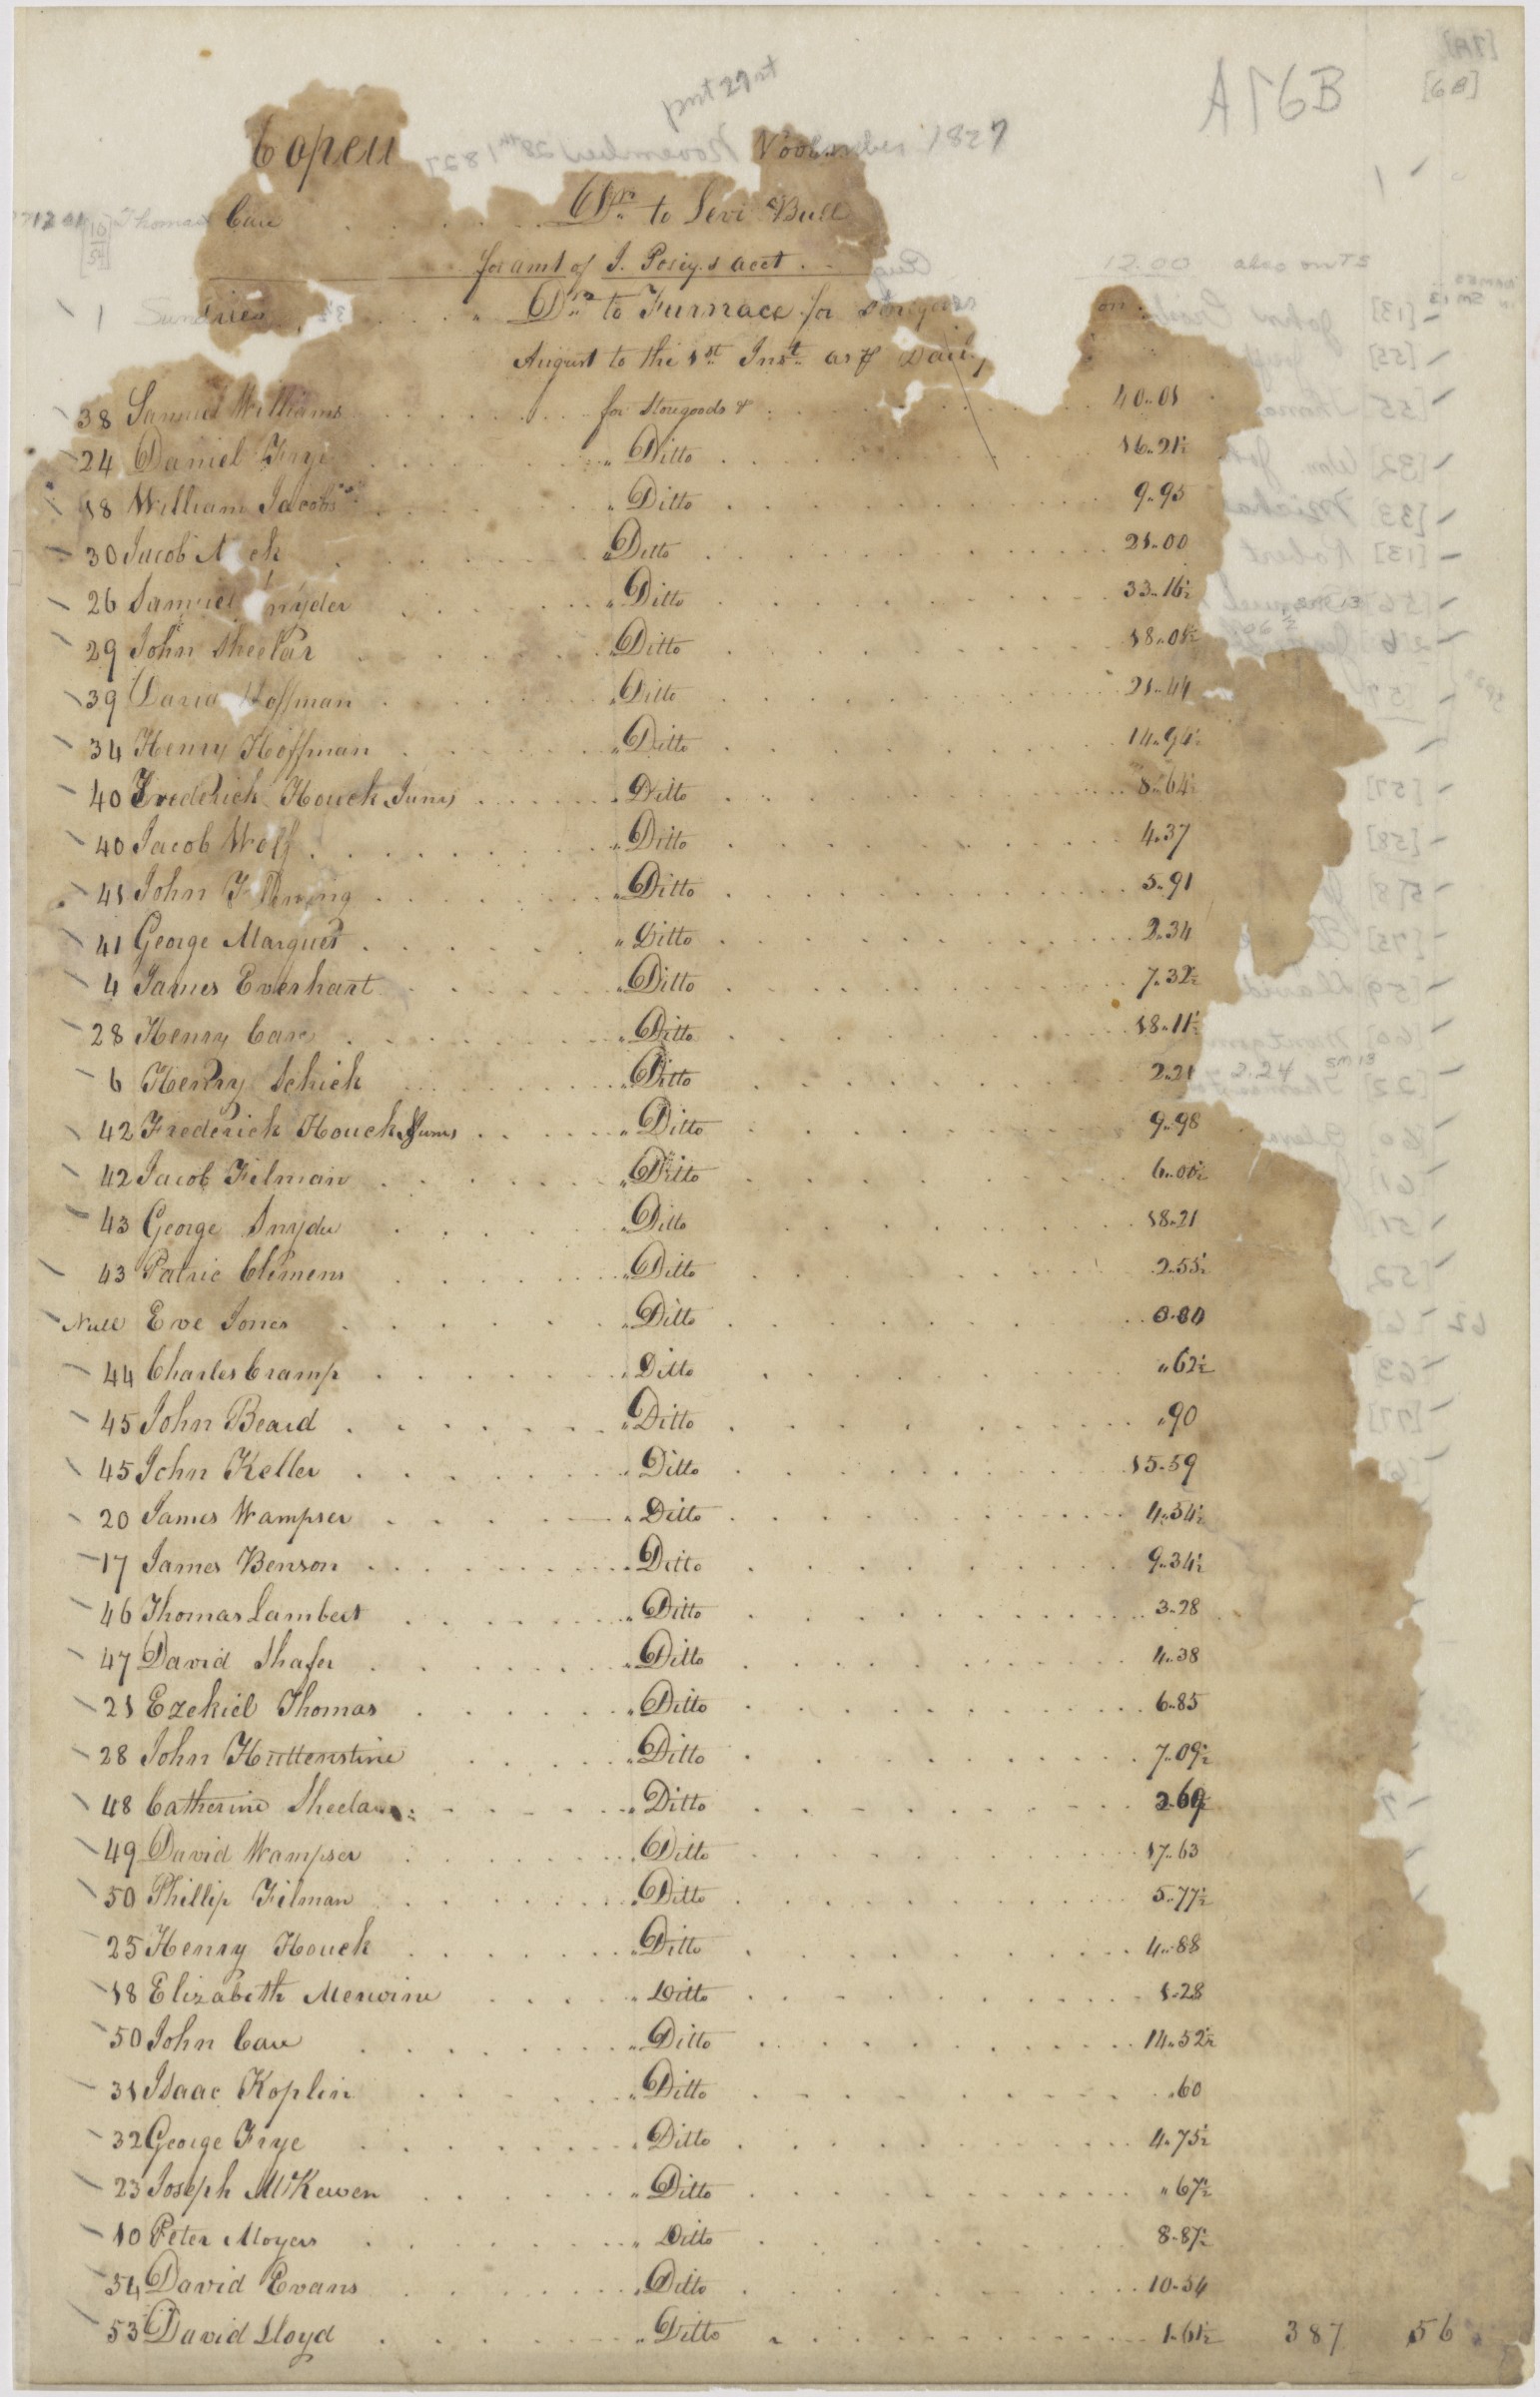 Copeu
Novbr 1827
Thomas Care Dr. to Levi Bull
for amt of J. Posey's acct.
12.00 also on TS
1 Sundries Dr. to Furnace for
August to the 1st Inst. as
38 Samuel Williams for Storegoods & 40.01
24 Daniel Frye " Ditto 16.21½
18 William Jacobs " Ditto 9.95
30 Jacob " Ditto 21.00
26 Samuel nyder " Ditto 33.16½
29 John Sheelar " Ditto 18.01½
39 David Hoffman " Ditto 21.44
34 Henry Hoffman " Ditto 14.94½
40 Frederick Houck Junr " Ditto 8.64½
40 Jacob Wolf " Ditto 4.37
41 John Fleming " Ditto 5.91
41 George Marques " Ditto 2.34
4 James Everhart " Ditto 7.32½
28 Henry Care " Ditto 18.11½
6 Henry Schick " Ditto 2.21
42 Frederick Houck " Ditto 9.98
42 Jacob Filman " Ditto 6.06½
43 George Snyder " Ditto 18.21
43 Patric Clemens " Ditto 2.55½
Null Eve Jones " Ditto 0.80
44 Charles Cramp " Ditto " 62½
45 John Beard " Ditto " 90
45 John Keller " Ditto 15.59
20 James Wampser " Ditto 4.54½
17 James Benson " Ditto 9.34½
46 Thomas Lambert " Ditto 3.28
47 David Shafer " Ditto 4.38
21 Ezekiel Thomas " Ditto 6.85
28 John Huttenstine " Ditto 7.09½
48 Catherine Sheelar " Ditto
49 David Wampser " Ditto 17.63
50 Phillip Filman " Ditto 5.77½
25 Henry Houck " Ditto 4.88
18 Elizabeth Menvine " Ditto 1.28
50 John Care " Ditto 14.52½
31 Isaac Koplin " Ditto " 60
32 George Frye " Ditto 4.75½
23 Joseph McKewen " Ditto " 67½
10 Peter Moyers " Ditto 8.87½
54 David Evans " Ditto 10.54
53 David Lloyd " Ditto 1.61½ 387 56